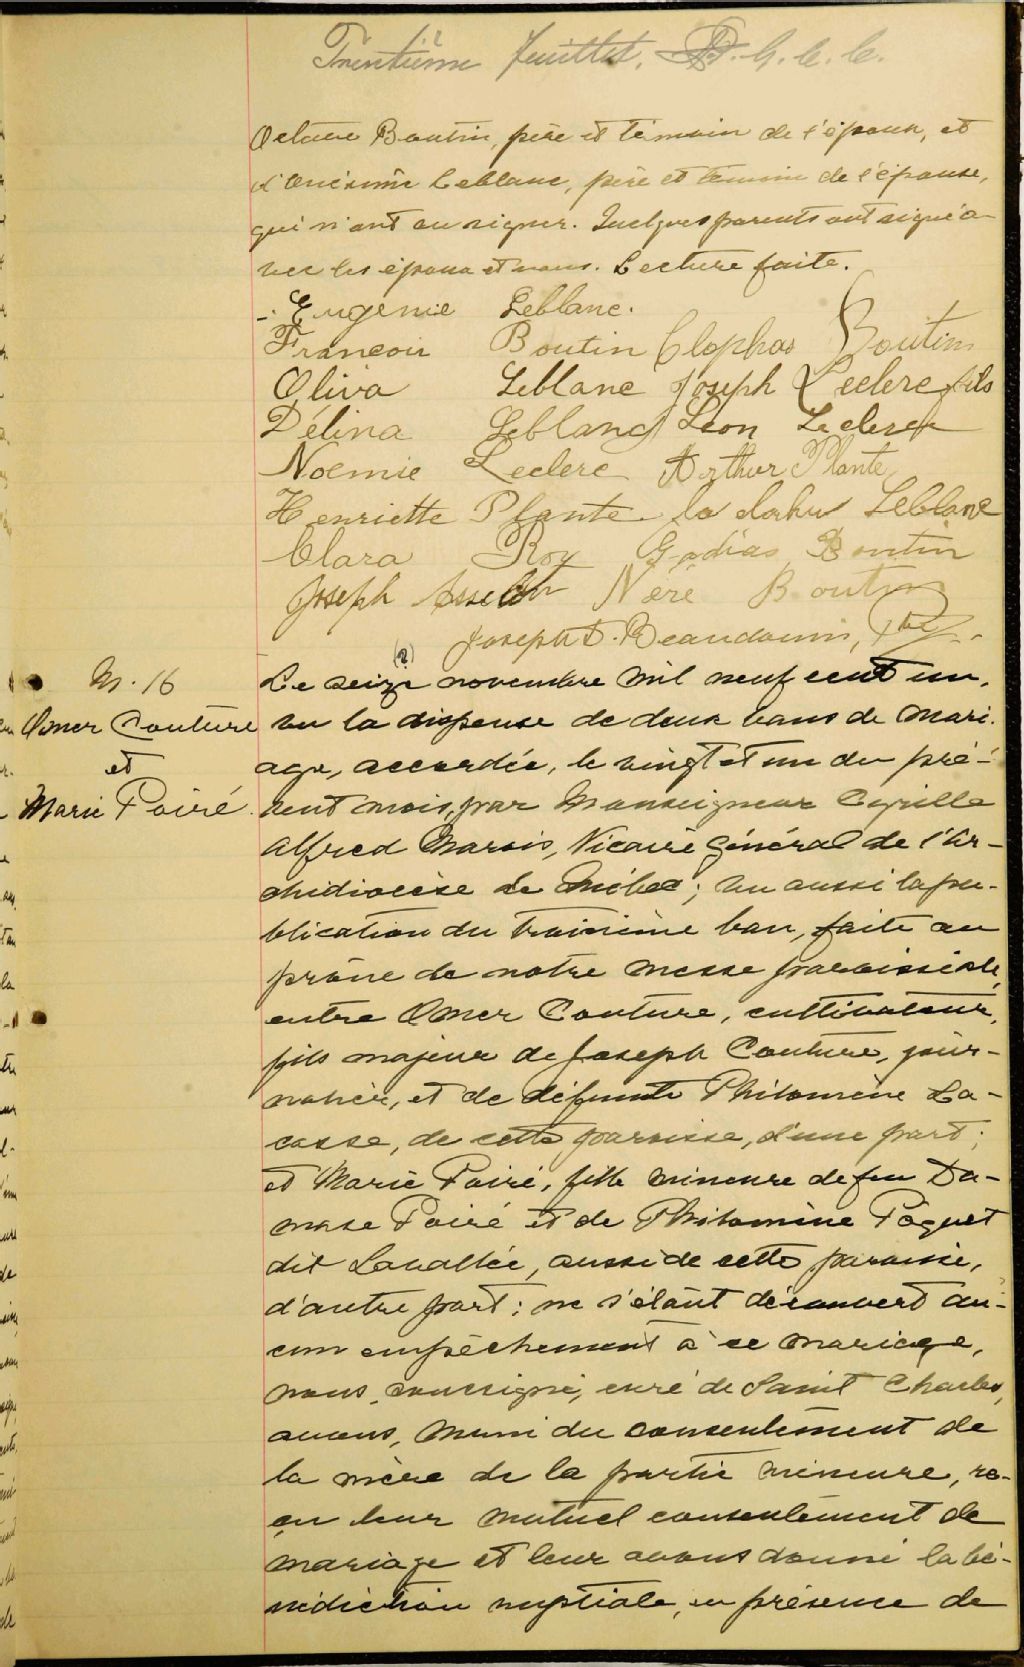 Trentième feuillet. G. C. C.
Octave Boutin, père et témoin de l'époux, et
d'Onésime Leblanc, père et témoin de l'épouse,
qui n'ont su signer. Quelques parents ont signé a-
vec les époux et nous. Lecture faite.
Eugenie Leblanc.
Francois Boutin Clophas Boutin
Oliva Leblanc Joseph Leclerc fils
Délina Leblanc Léon Leclerc
Noemie Leclerc Arthur Plante
Henriette Plante Leblanc
Clara Roy Gadias Boutin
Joseph Asselin Néré Boutin
Joseph D. Beaudouin, Ptre
M. 16
Omer Couture
et
Marie Poiré.
(?)
Le seize novembre mil neuf cent un,
vu la dispense de deux bans de mari-
age, accordée, le vingt et un du pré-
sent mois, par Monseigneur Cyrille
Alfred Marois, Vicaire Général de l'Ar-
chidiocèse de Québec; vu aussi la pu-
blication du troisième ban, faite au
prône de notre messe paroissiale,
entre Omer Couture, cultivateur,
fils majeur de Joseph Couture, jour-
nalier, et de défunte Philomène La-
casse, de cette paroisse, d'une part;
et Marie Poiré, fille mineure de feu Da-
mase Poiré et de Philomène Paquet
dit Lavallée, aussi de cette paroisse,
d'autre part; ne s'étant découvert au-
cun empêchement à ce mariage,
nous, soussigné, curé de Saint Charles,
avons, muni du consentement de
la mère de la partie mineure, re-
çu leur mutuel consentement de
mariage et leur avons donné la bé-
nédiction nuptiale, en présence de